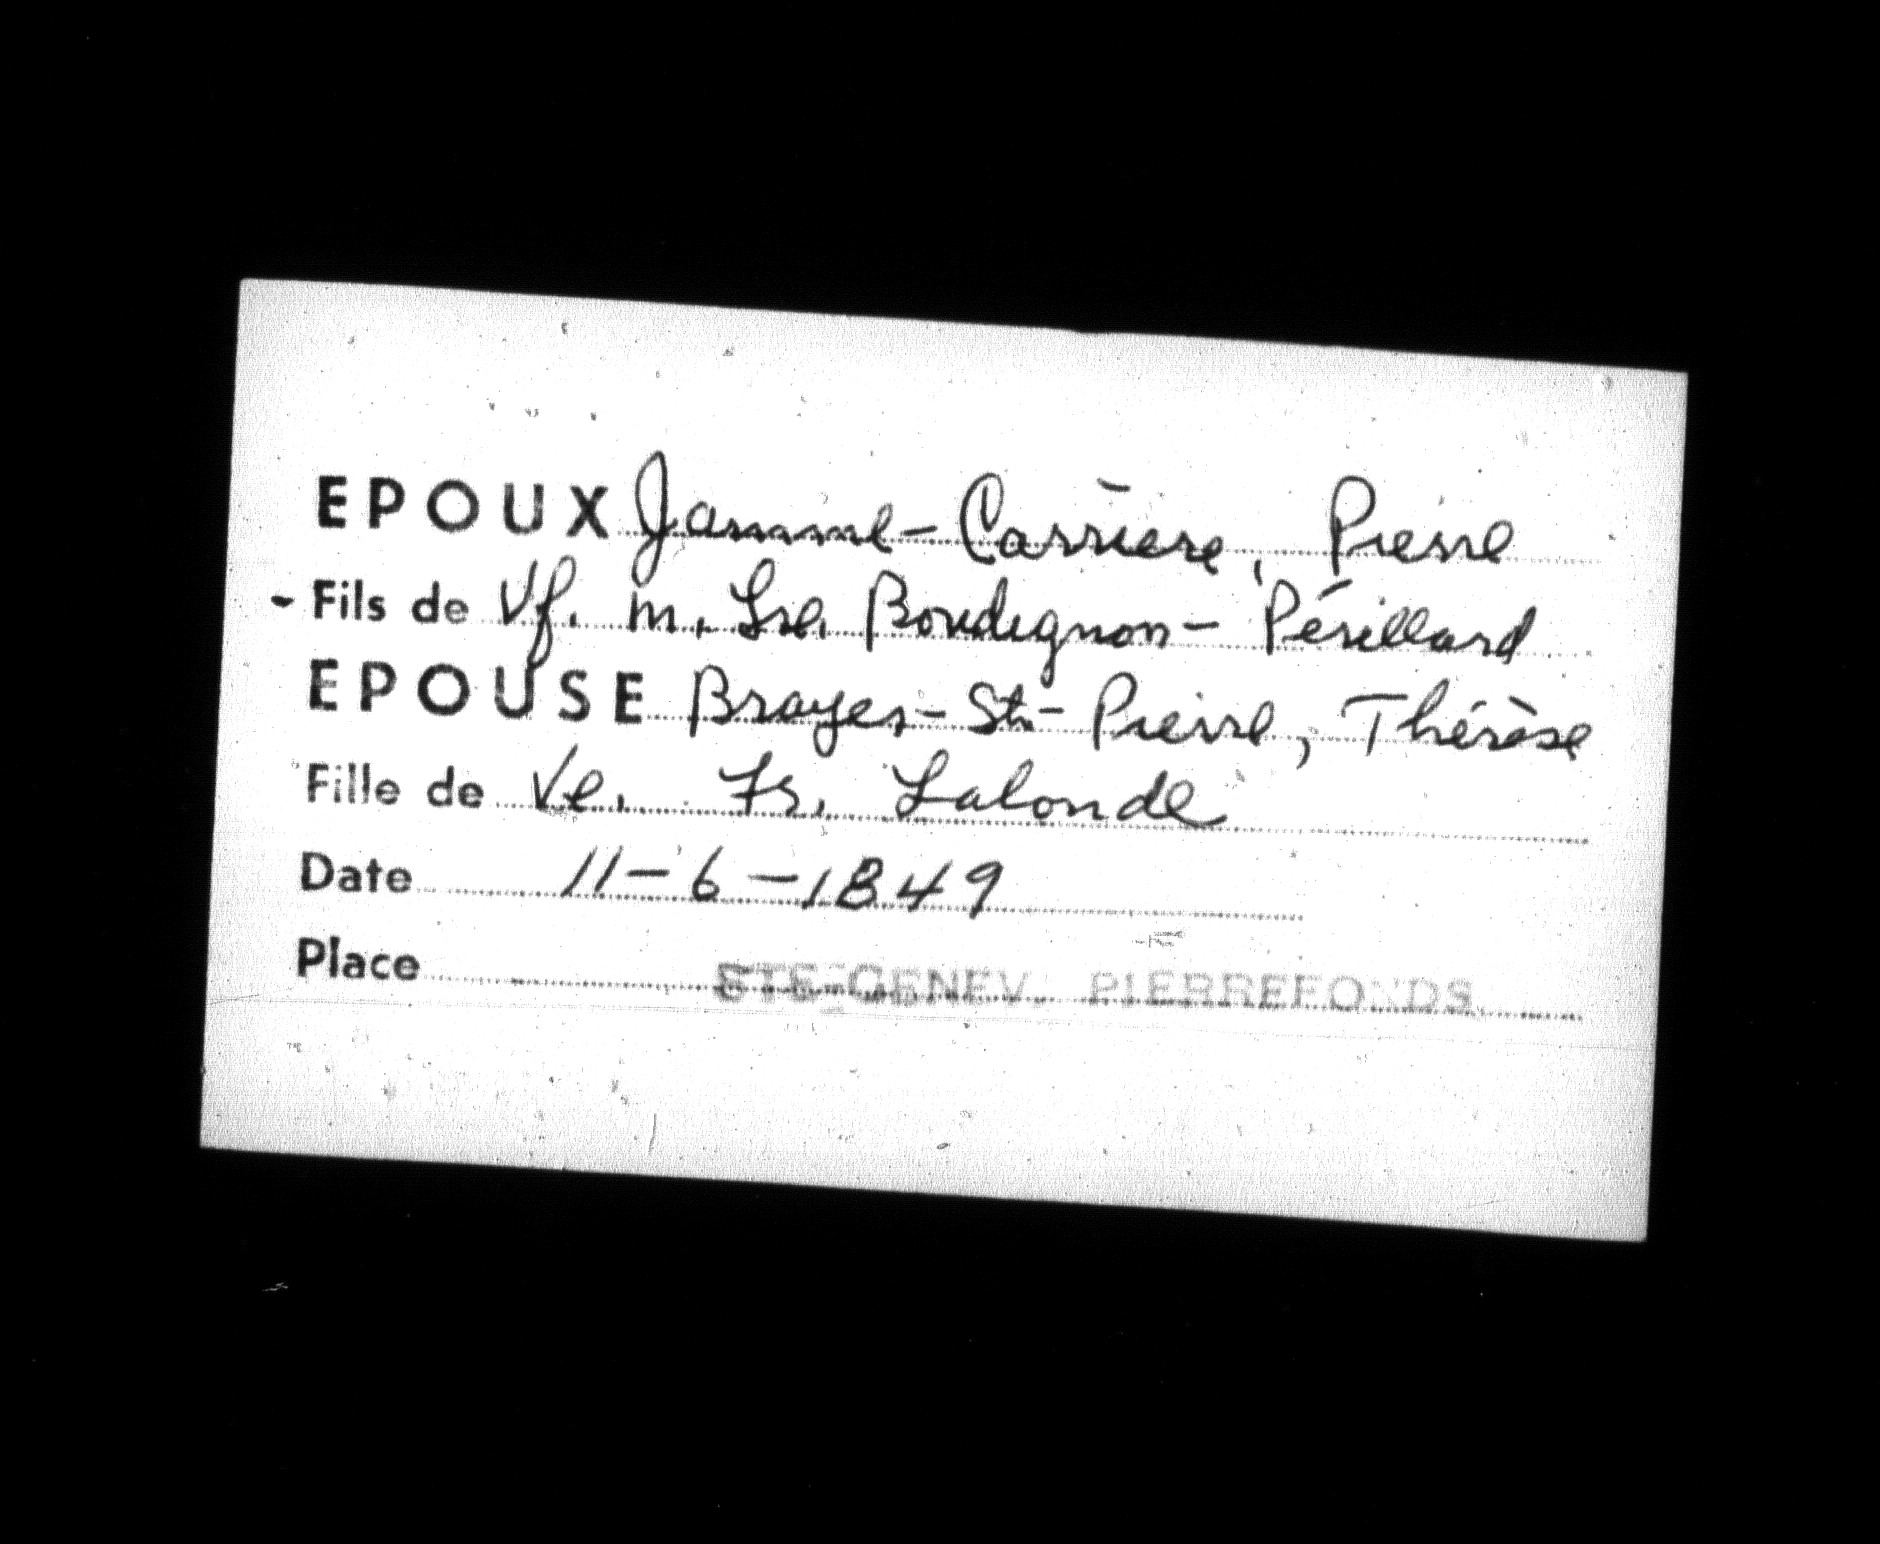 EPOUX Jamme-Carrière, Pierre
- Fils de Vf. M. Lse. Bourdignon- Périllard
EPOUSE Brayer-St-Pierre, Thérèse
Fille de Ve. Frs. Lalonde
Date 11-6-1849
Place STE-GENEV. PIERREFONDS